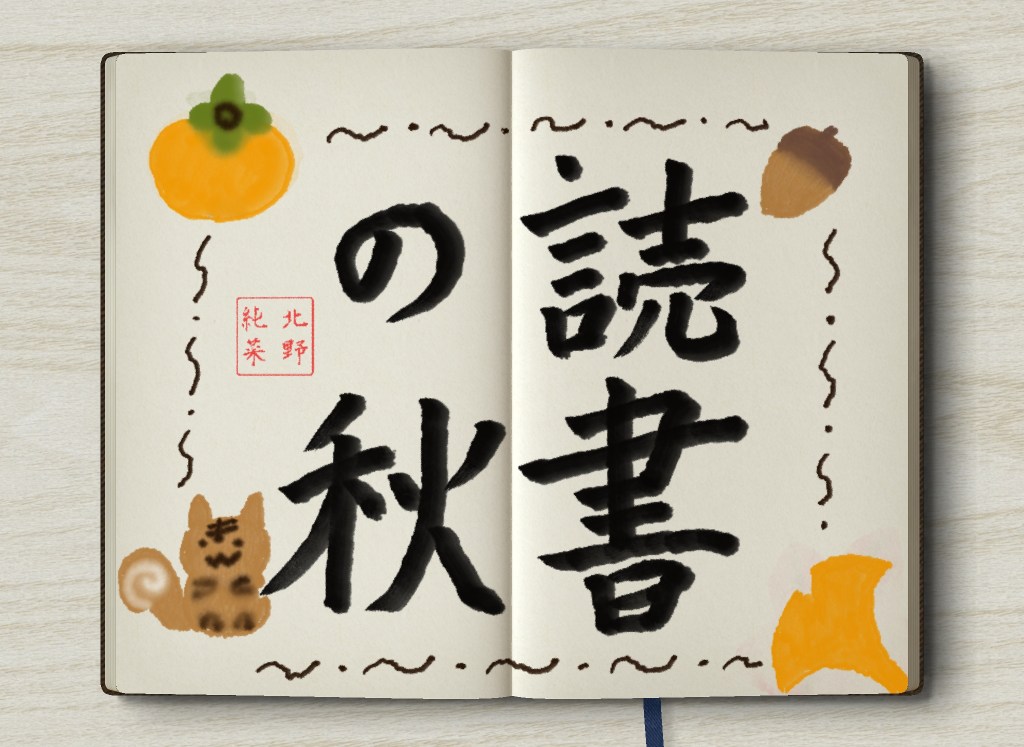 読書
の秋
北野
純菜